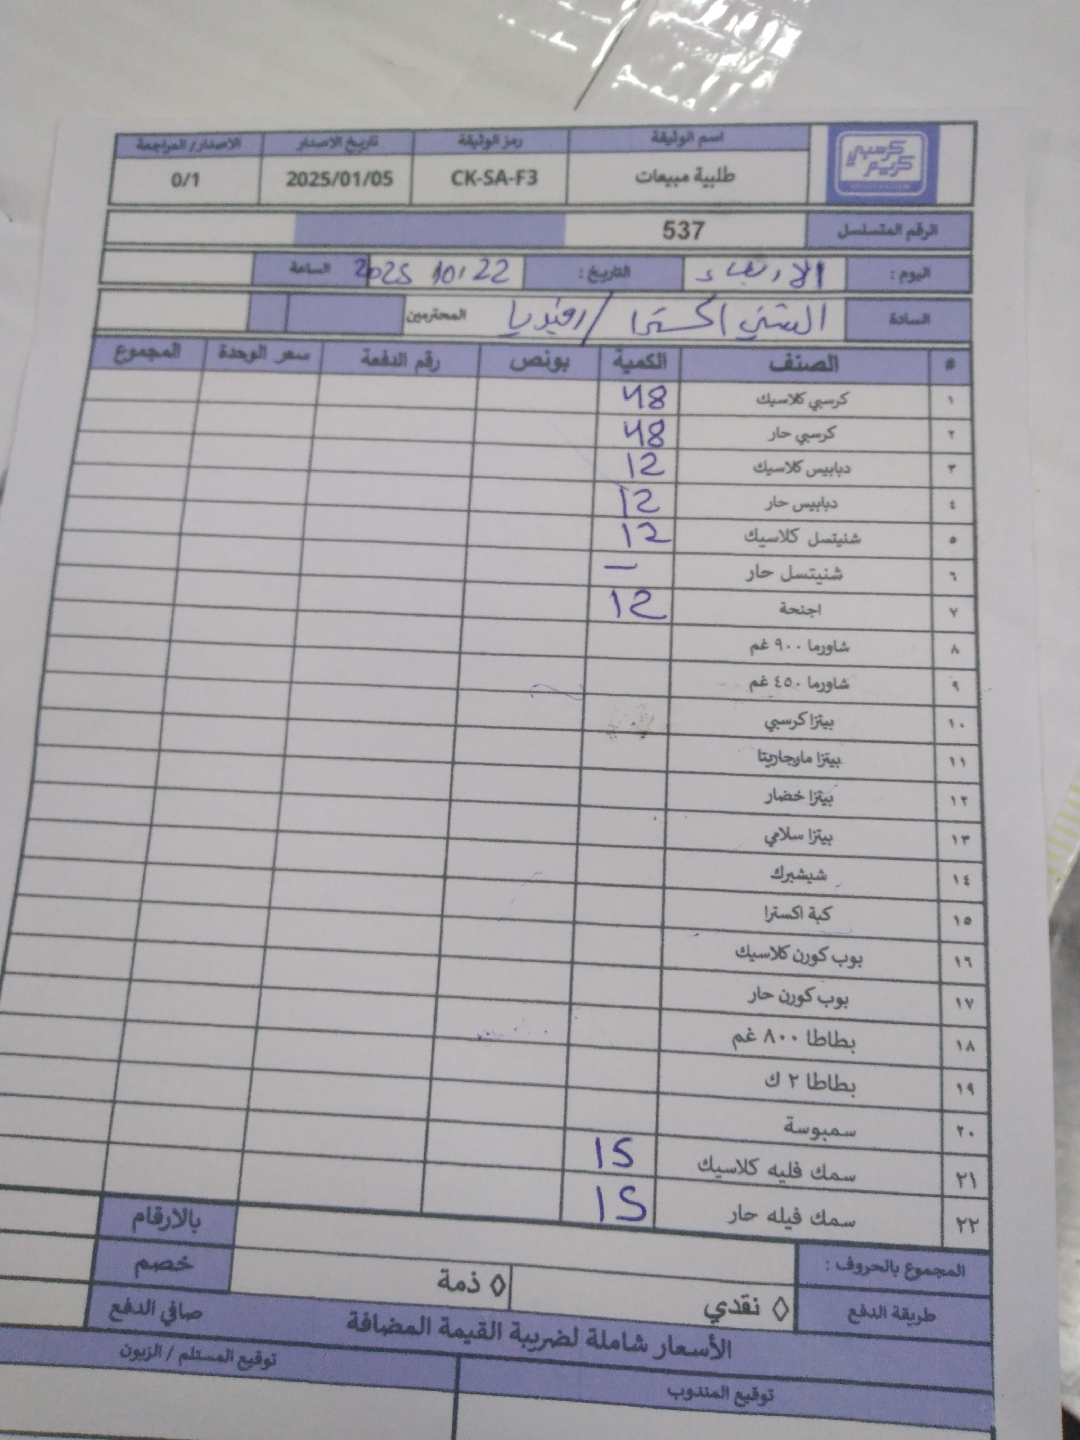 كرسبي كريم
اسم الوثيقة رمز الوثيقة تاريخ الاصدار الاصدار/ المراجعة
طلبية مبيعات CK-SA-F3 2025/01/05 0/1
الرقم المتسلسل 537
اليوم : الاربعاء التاريخ : 22 / 10 2025 الساعة
السادة الشني اكسترا / رفيديا المحترمين
# الصنف الكمية بونص رقم الدفعة سعر الوحدة المجموع
١ كرسبي كلاسيك 48
٢ كرسبي حار 48
٣ دبابيس كلاسيك 12
٤ دبابيس حار 12
٥ شنيتسل كلاسيك 12
٦ شنيتسل حار —
٧ اجنحة 12
٨ شاورما ٩٠٠ غم
٩ شاورما ٤٥٠ غم
١٠ بيتزا كرسبي
١١ بيتزا مارجاريتا
١٢ بيتزا خضار
١٣ بيتزا سلامي
١٤ شيشبرك
١٥ كبة اكسترا
١٦ بوب كورن كلاسيك
١٧ بوب كورن حار
١٨ بطاطا ٨٠٠ غم
١٩ بطاطا ٢ ك
٢٠ سمبوسة
٢١ سمك فليه كلاسيك 15
٢٢ سمك فيله حار 15
المجموع بالحروف : بالارقام
طريقة الدفع ◊ نقدي ◊ ذمة خصم
الأسعار شاملة لضريبة القيمة المضافة صافي الدفع
توقيع المندوب توقيع المستلم / الزبون